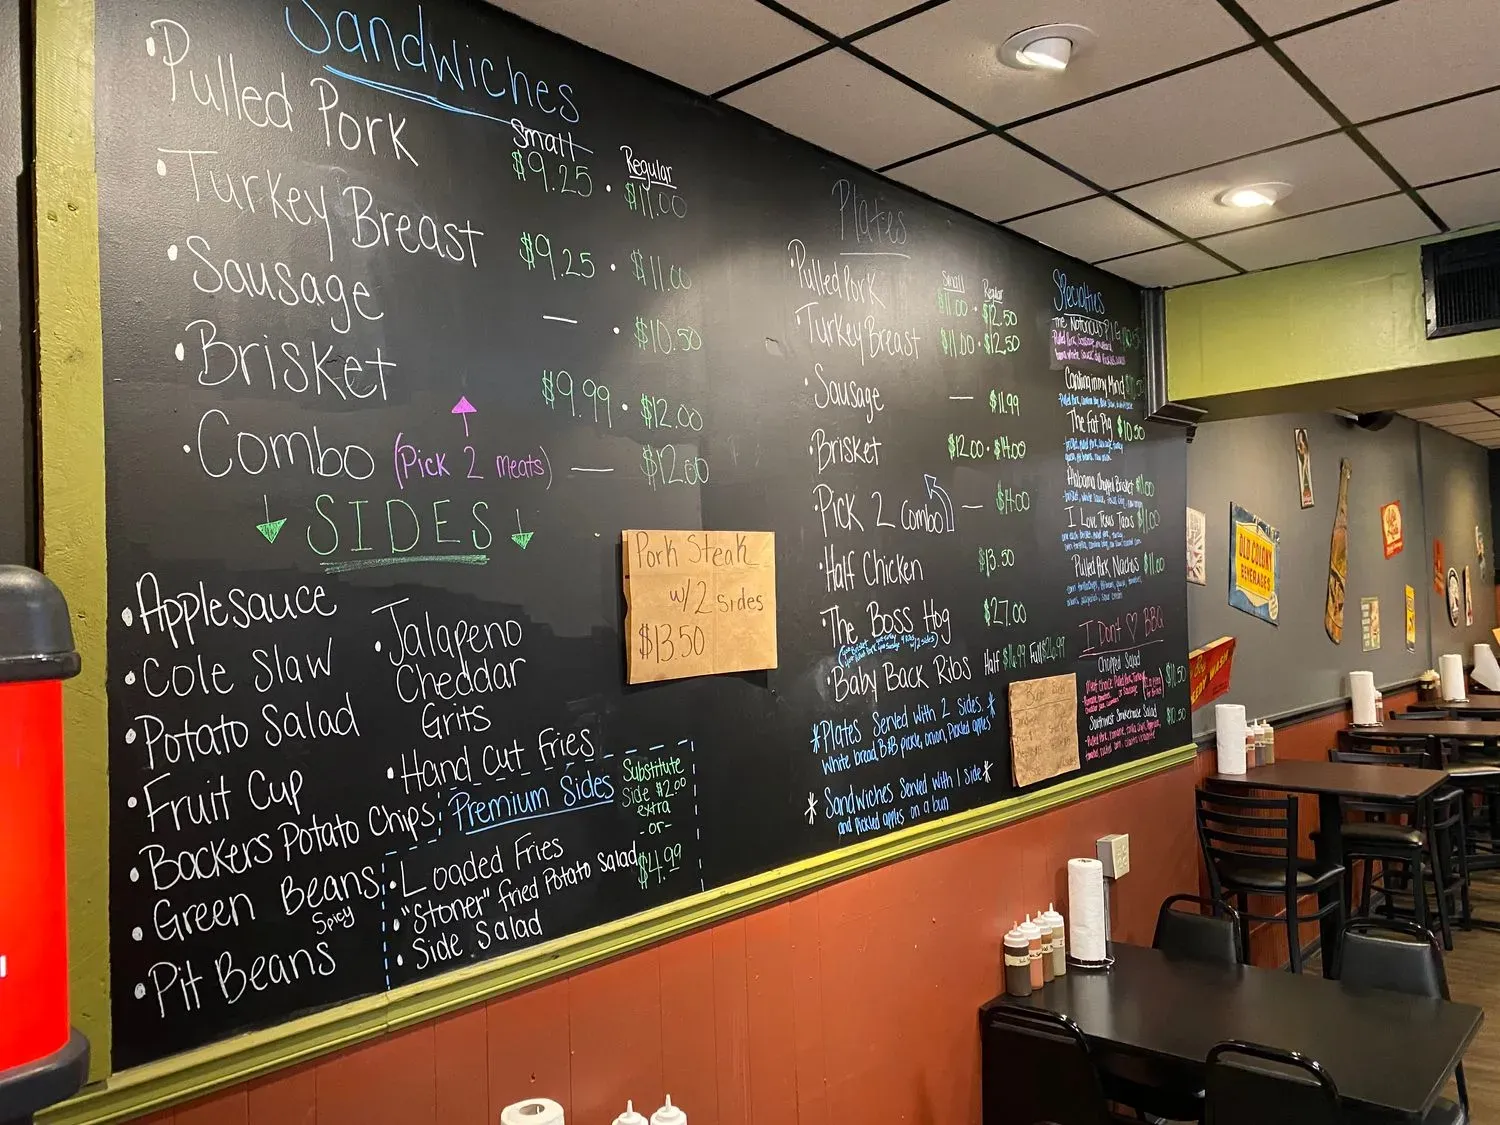 Sandwiches
Small
Regular
• Pulled Pork $9.25 • $11.00
• Turkey Breast $9.25 • $11.00
• Sausage — • $10.50
• Brisket $9.99 • $12.00
• Combo (Pick 2 meats) — $12.00
SIDES
• Applesauce
• Cole Slaw
• Potato Salad
• Fruit Cup
• Backers Potato Chips
• Green Beans
Spicy
• Pit Beans
• Jalapeno
Cheddar
Grits
• Hand Cut Fries
Premium Sides
• Loaded Fries
• "Stoner" Fried Potato Salad
• Side Salad
Substitute
Side $2.00
extra
-or-
$4.99
Pork Steak
w/2 sides
$13.50
Plates
Small
Regular
• Pulled Pork $11.00 • $12.50
• Turkey Breast $11.00 • $12.50
• Sausage — $11.99
• Brisket $12.00 • $14.00
• Pick 2 Combo — $14.00
• Half Chicken $13.50
• The Boss Hog $27.00
• Baby Back Ribs Half $16.99 Full $26.99
*Plates Served with 2 Sides *
White bread, B&B pickle, onion, Pickled apples*
* Sandwiches Served with 1 Side *
and Pickled apples on a bun
Specialties
The Notorious P.I.G
The Fat Pig $10.50
Alabama Chopped Brisket
I Love Texas Tacos $11.00
Pulled Pork Nachos $11.00
I Don't ♡ BBQ
Chopped Salad
Southwest Smokehouse Salad
OLD COLONY
BEVERAGES